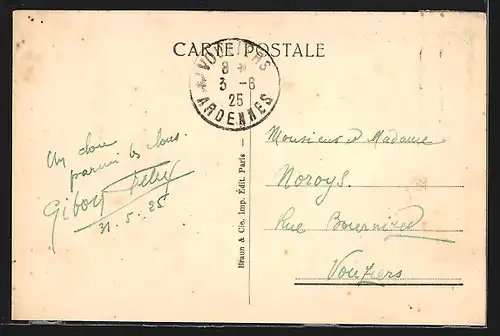 CARTE POSTALE
VOUZIERS
8 *
3 - 6
25
ARDENNES
Un chou
parmi les choux.
Gibout Félix
31.5.25
Braun & Cie, Imp. Édit. Paris —
Monsieur et Madame
Noroys.
Rue
Vouziers